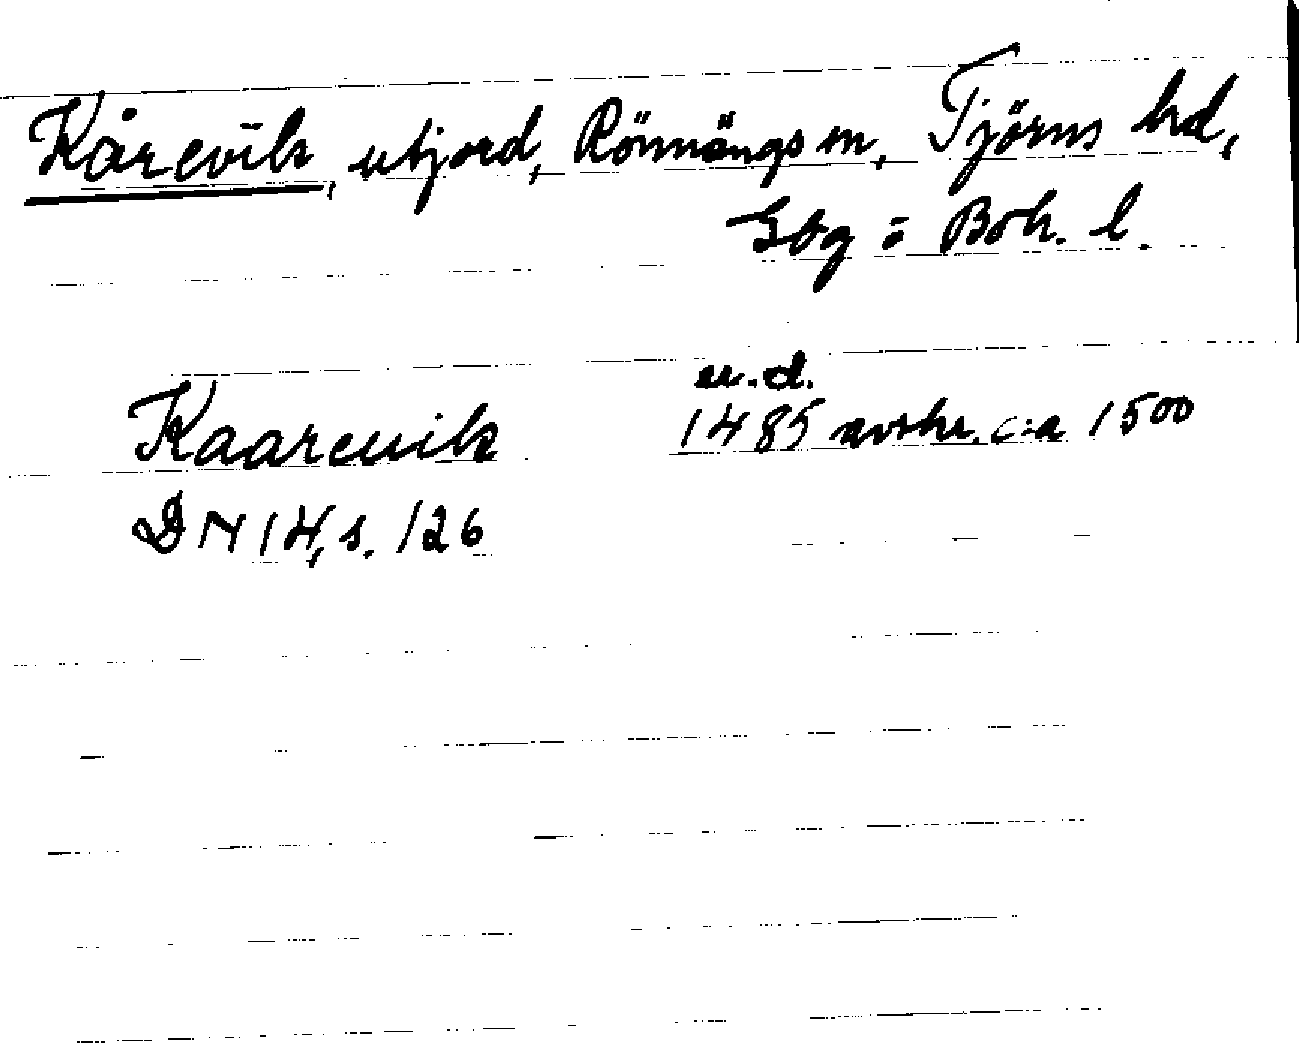 Kårevik, utjord, Rönnängs sn, Tjörns hd,
Gbg o Boh. l.
u.d.
Kaarevik 1485 avskr. c:a 1500
DN 14, s. 126